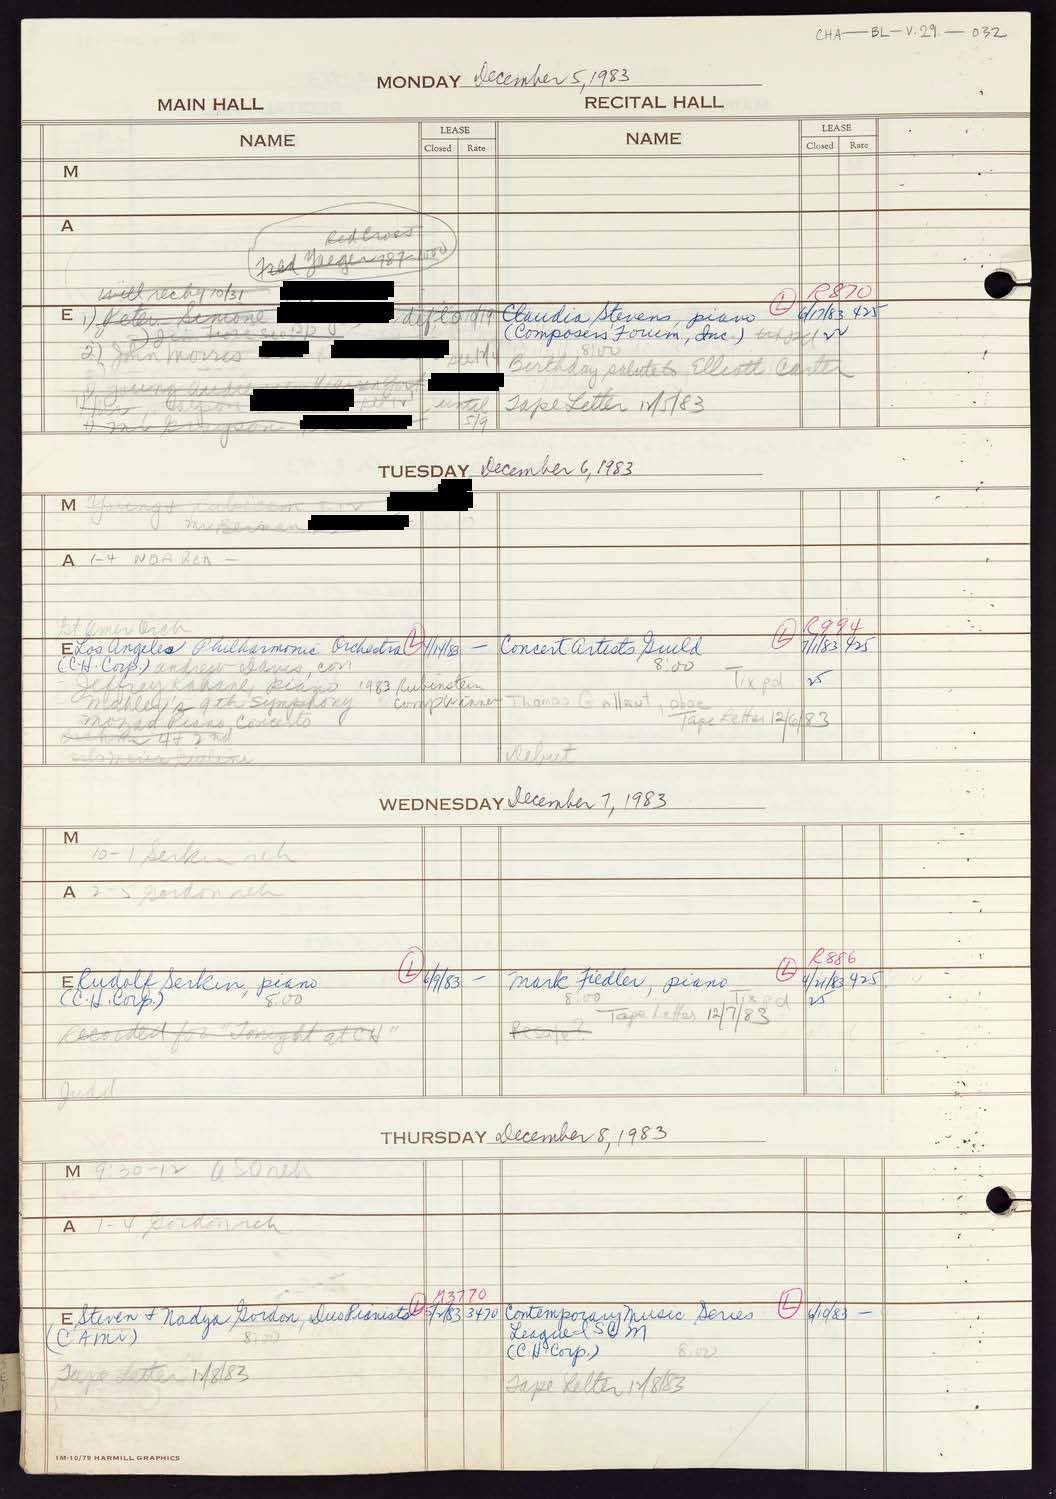 CHA—BL—V.29.—032
MONDAY December 5, 1983
MAIN HALL RECITAL HALL
NAME LEASE NAME LEASE
Closed Rate Closed Rate
M
A
Red Cross
Fred Yaeger 787-1000
will rec by 10/31
R870
E 1) Peter Simone
Claudia Stevens, piano L 6/17/83 425
(Composers' Forum, Inc.)
2) John Morris
8:00
Birthday salute to Elliott Carter
until Tape Letter 12/5/83
5/9
TUESDAY December 6, 1983
M Young & rubicam
Mr Berman
A 1-4 NOA Reh —
1st Amer Orch
R994
E Los Angeles Philharmonic Orchestra L 1/14/83 — Concert Artists Guild L 7/1/83 425
(C.H. Corp.) andrew Davis, con 8:00
Tix pd. 25
Jeffrey Kahane, piano 1983 Rubinstein
Mahler's 9th Symphony comp winner Thomas Gallant, oboe
Mozart Piano Concerto Tape Letter 12/6/83
4th 2nd
Debut
WEDNESDAY December 7, 1983
M
10-1 Serkin reh
A 2-5 Gordon reh
R886
E Rudolf Serkin, piano L 6/9/83 — Mark Fiedler, piano L 4/21/83 425
(C.H. Corp.) 8:00 8:00 Tix pd 25
Tape Letter 12/7/83
Recorded for "Tonight at CH" Resale?
Judd
THURSDAY December 8, 1983
M 9:30-12 ASO reh
A 1-4 Gordon reh
M3770
E Steven & Nadya Gordon, Duo Pianists L 5/2/83 3470 Contemporary Music Series L 6/10/83 —
(CAMI) 8:00 League-ISCM
(C.H. Corp.) 8:00
Tape Letter 12/8/83
Tape Letter 12/8/83
1M-10/79 HARMILL GRAPHICS